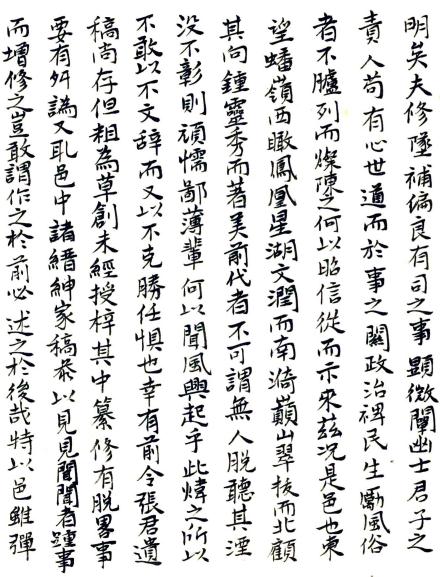 明矣夫修墜補偏良有司之事顯微闡幽士君子之
責人苟有心世道而於事之關政治禆民生勵風俗
者不臚列而燦陳之何以昭信從而示來茲况是邑也東
望蟠嶺西瞰鳳凰星湖文潤而南漪巔山翠抜而北顧
其向鍾靈秀而著美前代者不可謂無人脱聽其湮
没不彰則頑懦鄙薄輩何以聞風興起乎此煒之所以
不敢以不文辞而又以不克勝任惧也幸有前令張君遺
稿尚存但粗為草創未經授梓其中纂修有脱畧事
要有舛譌又耴邑中諸縉紳家稿叅以見見聞聞者踵事
而增修之豈敢謂作之於前必述之於後哉特以邑雖彈